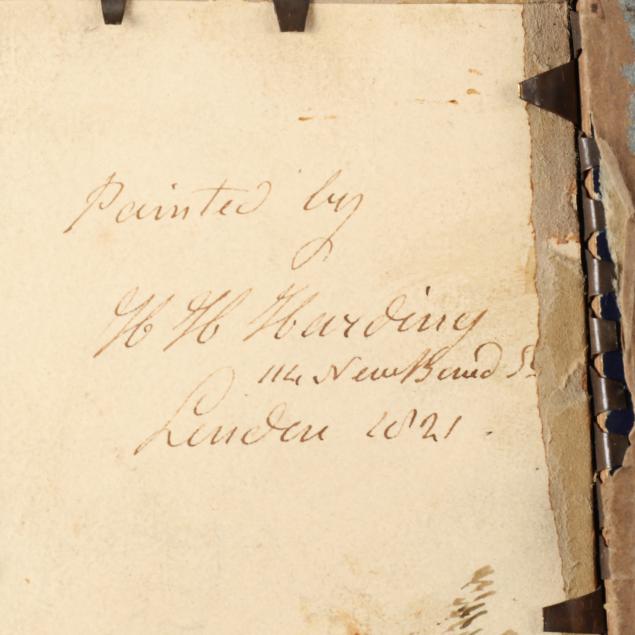 Painted by
H H Harding
114 New Bond St
London 1821